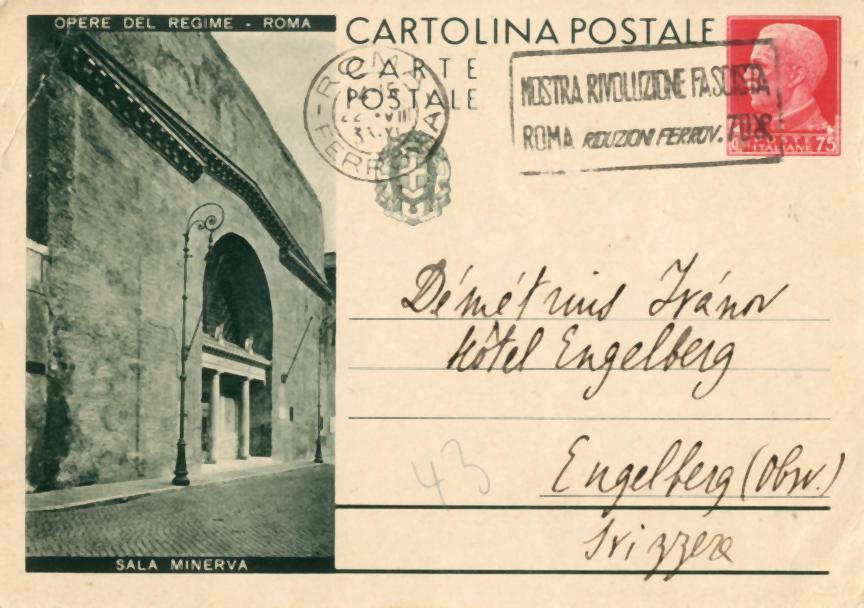 OPERE DEL REGIME - ROMA
CARTOLINA POSTALE
CARTE
POSTALE
ROMA
22 · VIII
FERROVIA
MOSTRA RIVOLUZIONE FASCISTA
ROMA RIDUZIONI FERROV. 70%
POSTE ITALIANE 75
Démétrius Ivánov
Hôtel Engelberg
Engelberg (Obw.)
Svizzera
43
SALA MINERVA